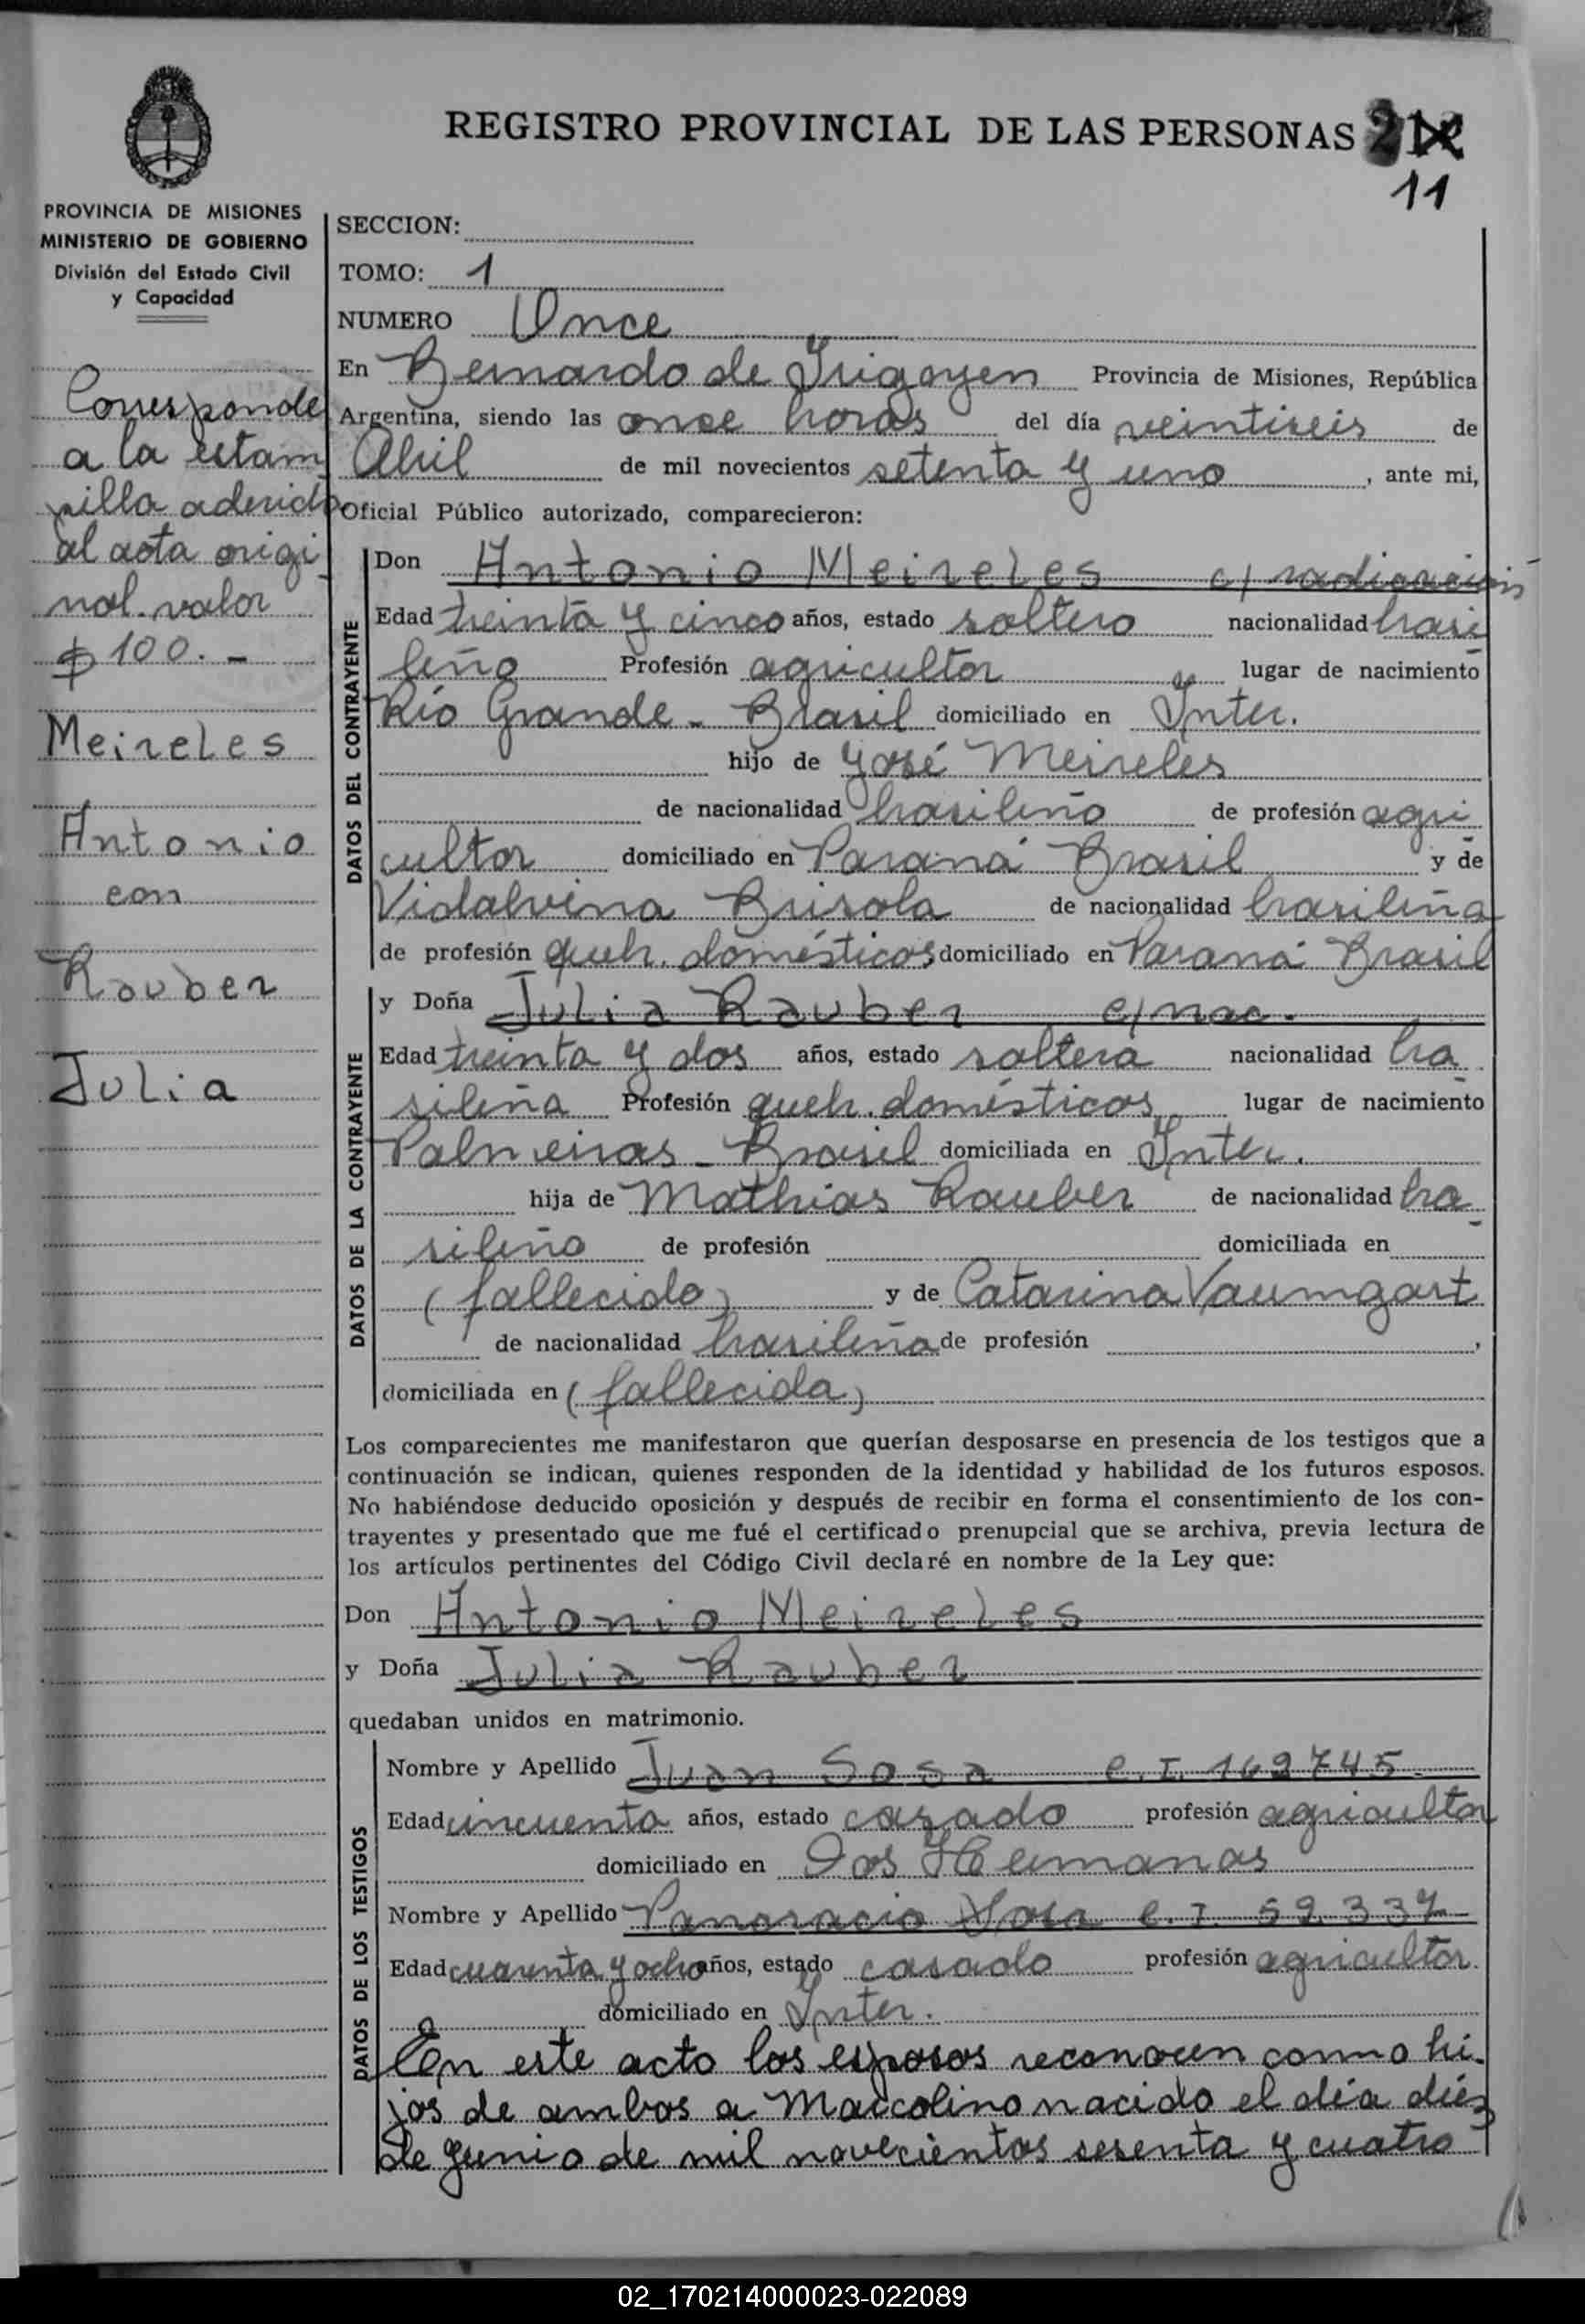 REGISTRO PROVINCIAL DE LAS PERSONAS
11
PROVINCIA DE MISIONES
MINISTERIO DE GOBIERNO
División del Estado Civil
y Capacidad
SECCION:
TOMO: 1
NUMERO Once
Corresponde
a la estam
pilla aderida
al acta origi
nal. valor
$ 100.-
Meireles
Antonio
con
Rauber
Julia
En Bernardo de Irigoyen Provincia de Misiones, República
Argentina, siendo las once horas del día veintiseis de
Abril de mil novecientos setenta y uno, ante mi,
Oficial Público autorizado, comparecieron:
DATOS DEL CONTRAYENTE
Don Antonio Meireles c/ radicación
Edad treinta y cinco años, estado soltero nacionalidad brasi
leño Profesión agricultor lugar de nacimiento
Río Grande - Brasil domiciliado en Inter.
hijo de José Meireles
de nacionalidad brasileño de profesión agri
cultor domiciliado en Paraná Brasil y de
Vidalvina Brisola de nacionalidad brasileña
de profesión queh. domésticos domiciliado en Paraná Brasil
DATOS DE LA CONTRAYENTE
y Doña Julia Rauber c/nac.
Edad treinta y dos años, estado soltera nacionalidad bra
sileña Profesión queh. domésticos lugar de nacimiento
Palmeiras - Brasil domiciliada en Inter.
hija de Mathias Rauber de nacionalidad bra
sileño de profesión domiciliada en
(fallecido) y de Catarina Vaumgart
de nacionalidad brasileña de profesión ,
domiciliada en (fallecida)
Los comparecientes me manifestaron que querían desposarse en presencia de los testigos que a
continuación se indican, quienes responden de la identidad y habilidad de los futuros esposos.
No habiéndose deducido oposición y después de recibir en forma el consentimiento de los con-
trayentes y presentado que me fué el certificado prenupcial que se archiva, previa lectura de
los artículos pertinentes del Código Civil declaré en nombre de la Ley que:
Don Antonio Meireles
y Doña Julia Rauber
quedaban unidos en matrimonio.
DATOS DE LOS TESTIGOS
Nombre y Apellido Juan Sosa C.I. 162745
Edad cincuenta años, estado casado profesión agricultor
domiciliado en Dos Hermanas
Nombre y Apellido Pancracio Sosa C.I. 59.337
Edad cuarenta y ocho años, estado casado profesión agricultor
domiciliado en Inter.
En este acto los esposos reconocen como hi-
jos de ambos a Marcolino nacido el día diez
de junio de mil novecientos sesenta y cuatro
02_170214000023-022089